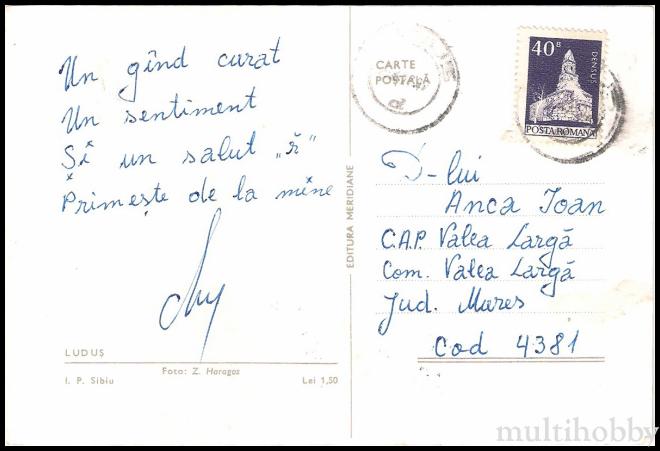 Un gînd curat
Un sentiment
Și un salut „ți”
Primește de la mine
LUDUȘ
Foto: Z. Haragos
I. P. Sibiu
Lei 1,50
EDITURA MERIDIANE
CARTE
POȘTALĂ
40 B
DENSUȘ
POSTA ROMANA
D-lui
Anca Ioan
C.A.P. Valea Largă
Com. Valea Largă
Jud. Mureș
Cod 4381
multihobby